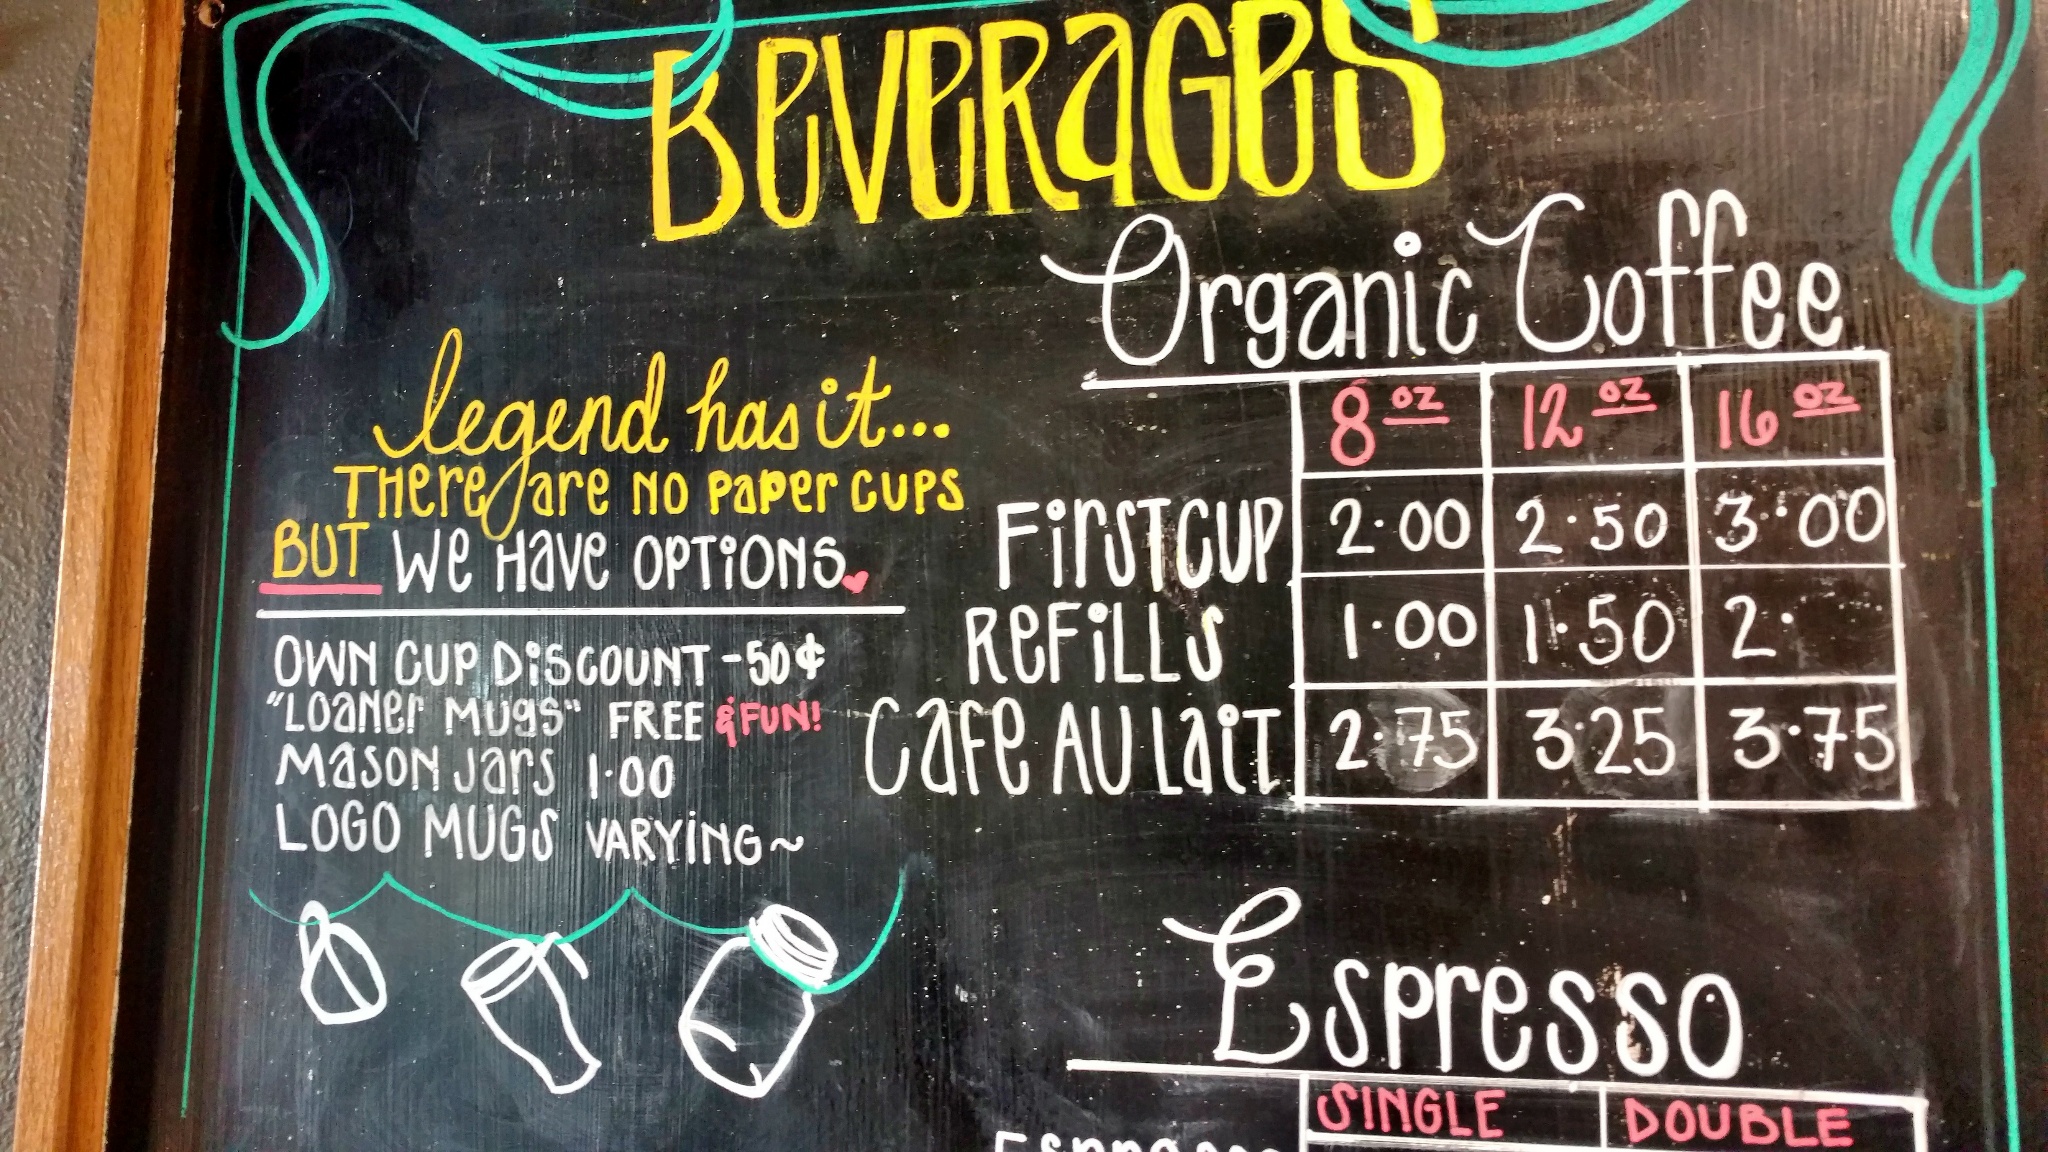 BEVERAGES
legend has it...
THERE are NO PAPER CUPS
BUT WE HAVE OPTIONS
OWN CUP DISCOUNT -50¢
"LOANER MUGS" FREE & FUN!
MASON JARS 1.00
LOGO MUGS VARYING~
Organic Coffee
8 oz 12 oz 16 oz
FIRST CUP 2.00 2.50 3.00
REFILLS 1.00 1.50 2.
CAFE AU LAIT 2.75 3.25 3.75
Espresso
SINGLE DOUBLE